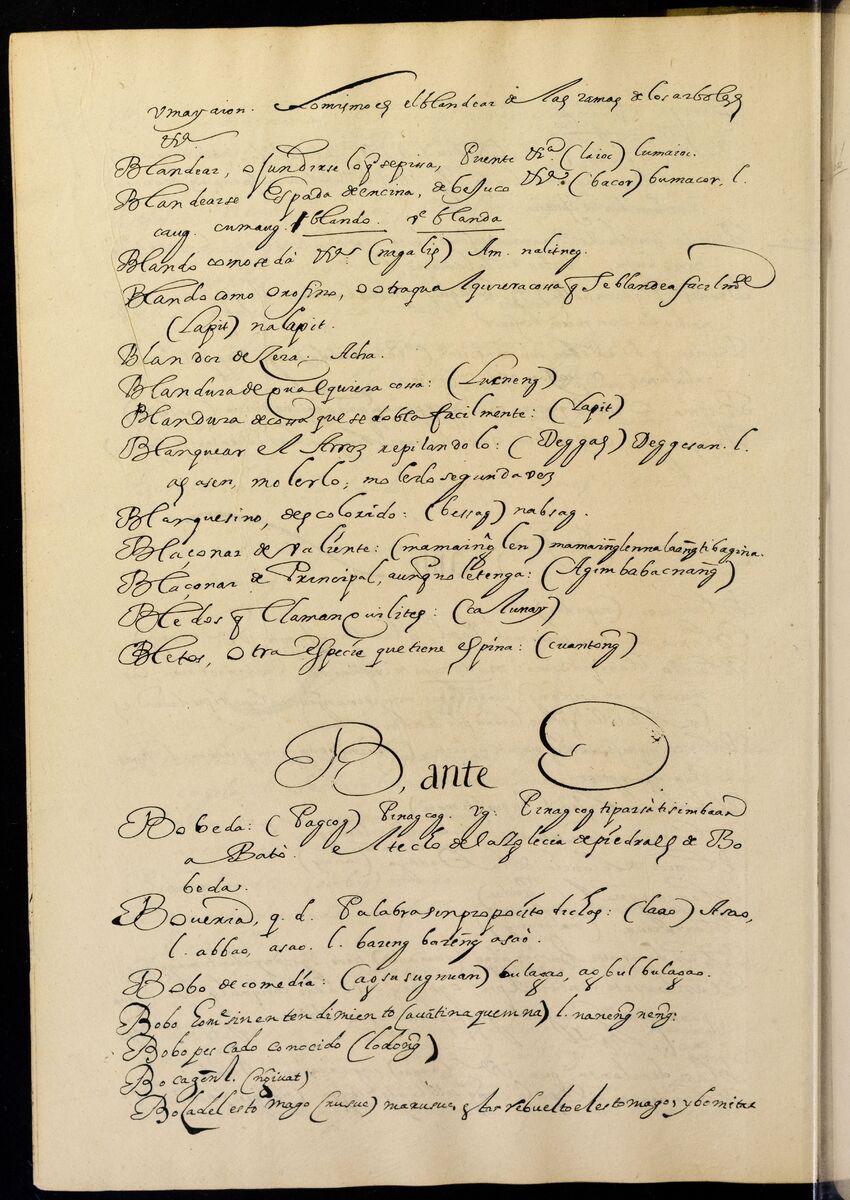 vmayaion. Lomismo es el blandear de las ramas de los arboles
Blandear, o fundirse lo q̃ se pissa, Puente &ra (laioc) lumaioc.
Blandearse Espada de encina, de beJuco (bacor) bumacor. l.
caug. cumaug. blando. re blanda
Blando como seda (nagalis) Am. nalitneg.
Blando como Oro fino, o otra qualquiera cossa q̃ se blandea facilmte
(Lapit) nalapit.
Blandor de Zera. Acha.
Blandura de qualquiera cossa: (Lucneng)
Blandura de cossa que se dobla facilmente: (Lapit)
Blanquear el Arroz repilandolo: (Deggas) Deggesan. l.
agasen, molerlo; molerlo segunda vez
Blanquesino, descolorido: (bessag) nabsag.
Blaçonar de valiente: (mamaing̃len) mamaing̃lennalaong̃tibagina.
Blaçonar de Principal, aunq̃ no le tenga: (Agimbabacnang̃)
Bledos q̃ llaman quilites: (calunay)
Bletos, Otra Especie que tiene espina: (cuantong̃)
B, ante O
Bobeda: (Pagcog) Pinagcog. vg. Pinagcog ti parsàtisimbaan
a Batò. el techo de la Yglecia de piedra es de Bo
beda.
Boveria, q. d. Palabras in propocito dichas: (laao) Asao,
l. abbao, asao. l. bareng bareng̃ asaò.
Bobo de comedia: (agsusugnuan) bulagao, agbulbulagao.
Bobo homе sin entendimiento (auãtinaquemna) l. naneng̃neng̃:
Bobo pescado conocido (lodong̃)
Boca gẽnl. (ng̃iuat)
Boca del estomago (rusuc) marusuc, estar rebuelto el estomago, y bomitar